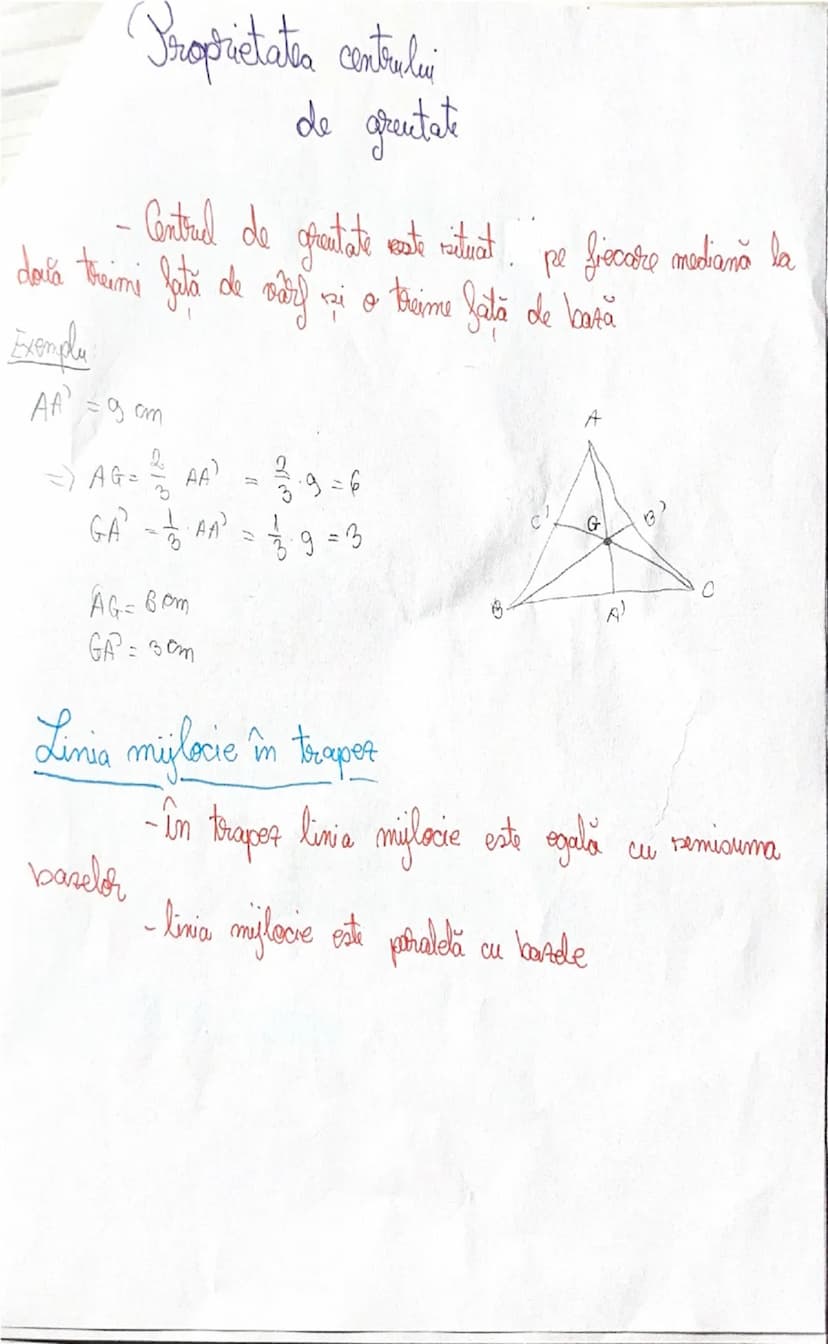 Proprietatea centrului
de greutate
- Centrul de greutate este situat pe fiecare mediană la
două treimi față de vârf și o treime față de bază
Exemplu:
AA' = 9 cm
=> AG = 2/3 AA' = 2/3 · 9 = 6
GA' = 1/3 · AA' = 1/3 · 9 = 3
AG = 6 cm
GA' = 3 cm
A
C' G B'
B A' C
Linia mijlocie în trapez
- În trapez linia mijlocie este egală cu semisuma
bazelor
- linia mijlocie este paralelă cu bazele